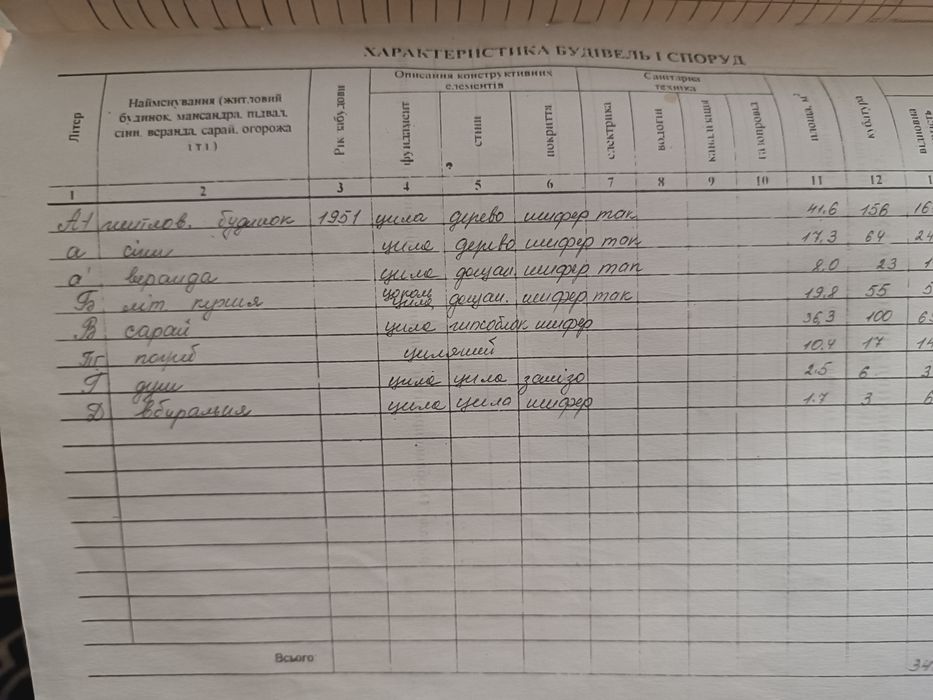 ХАРАКТЕРИСТИКА БУДІВЕЛЬ І СПОРУД
Літер
Найменування (житловий
будинок, мансандра, підвал,
сіни, веранда, сарай, огорожа
і т.і.)
Рік забудови
Описання конструктивних
елементів
Санітарна
техніка
фундамент
стіни
покриття
електрика
водогін
каналізація
газопровід
площа, м²
кубатура
відновна
1 2 3 4 5 6 7 8 9 10 11 12 1
А1 житлов. будинок 1951 цегла дерево шифер так 41.6 156 16
а сіни цегла дерево шифер так 17,3 64 24
а' веранда цегла дощан. шифер так 8.0 23 1
Б літ. кухня цоколь цегла дощан. шифер так 19.8 55 5
В сарай цегла гипсоблок шифер 36,3 100 6
Пг погріб цегляний 10.4 17 14
Г душ цегла цегла залізо 2.5 6 3
Д вбиральня цегла цегла шифер 1.7 3 6
Всього:
34